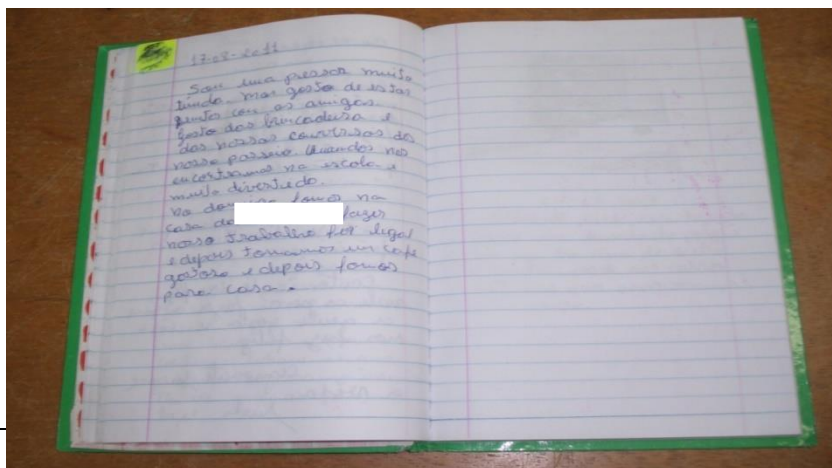 17-08-2011
Sou uma pessoa muito
timido. mas gosto de estar
junto com os amigos.
gosto das brincadeira e
das nossas conversas do
nosso passeio. Quando nos
encontramos na escola e
muito divertido.
No fomos na
casa do fazer
nosso trabalho foi legal
e depois tomamos um café
gostoso e depois fomos
para casa.